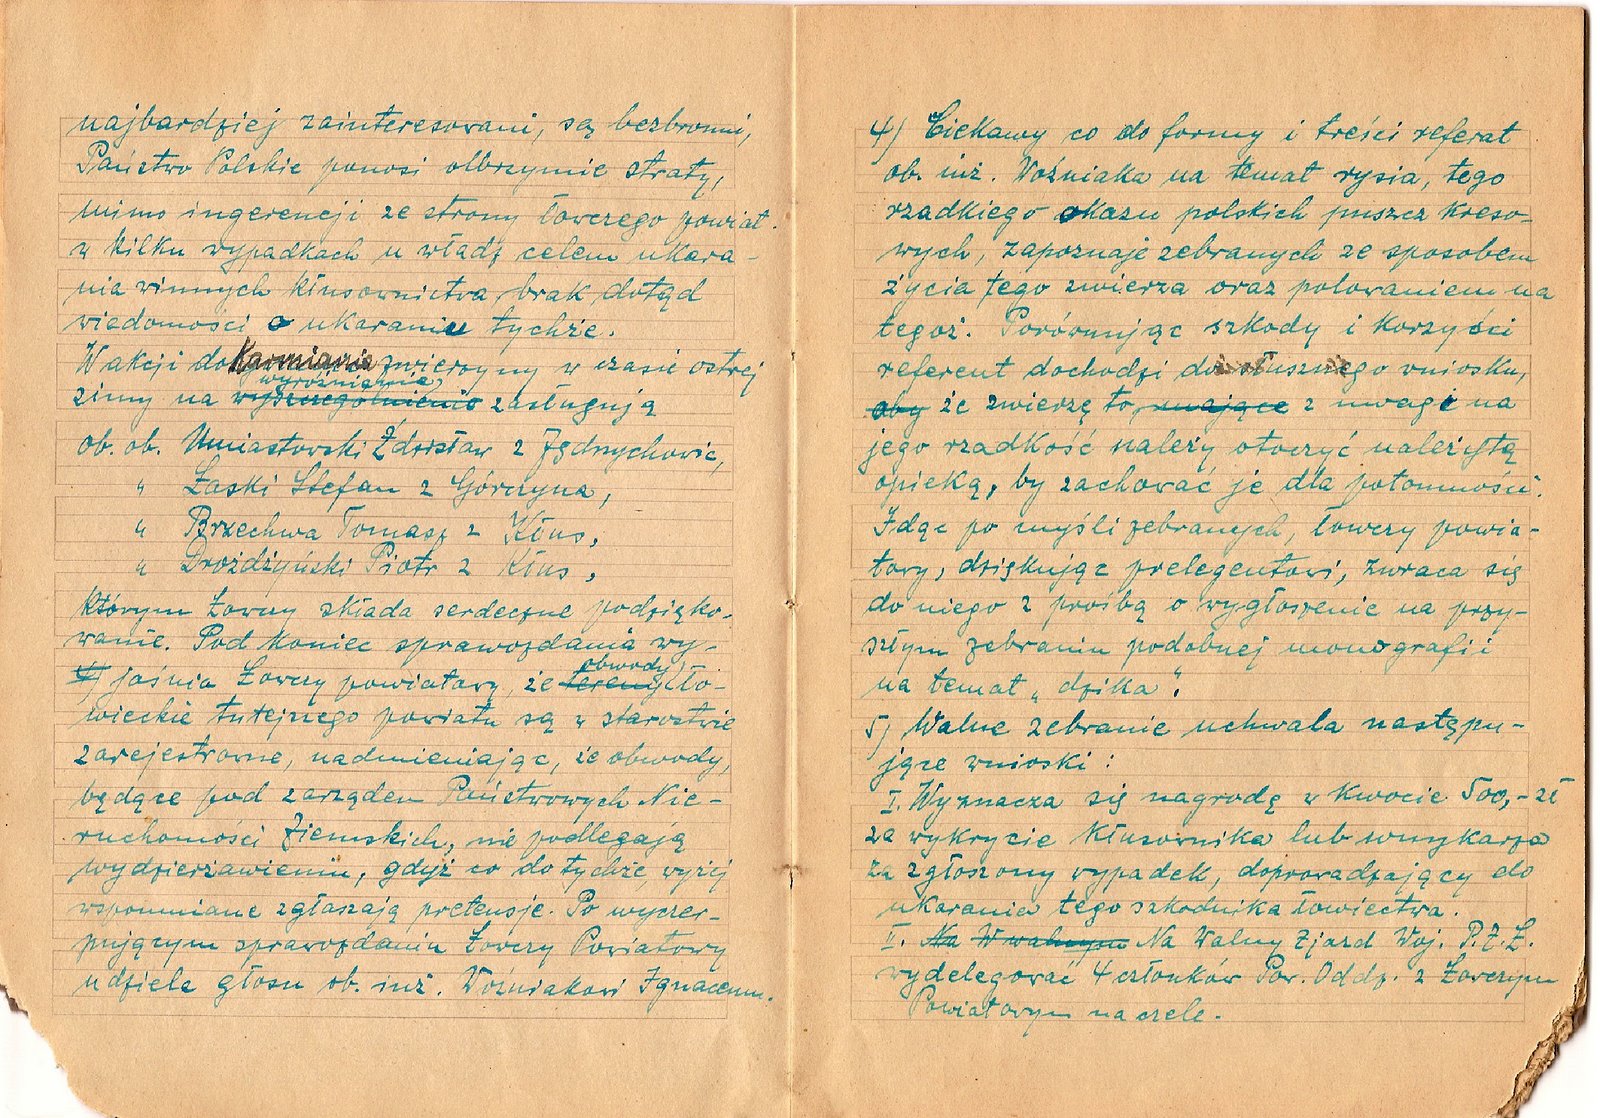 najbardziej zainteresowani, są bezbronni,
Państwo Polskie ponosi olbrzymie straty,
mimo ingerencji ze strony łowczego powiat.
w kilku wypadkach u władz celem ukara-
nia winnych kłusownictwa brak dotąd
wiadomości o ukaraniu tychże.
W akcji dokarmiania zwierzyny w czasie ostrej
wyróżnienie
zimy na wyszczególnienie zasługują
ob. ob. Umiastowski Zdzisław z Jędrychowic,
" Łaski Stefan z Górczyna,
" Brzechwa Tomasz z Kłus,
" Drożdżyński Piotr z Kłus,
którym Łowczy składa serdeczne podzięko-
wanie. Pod koniec sprawozdania wy-
obwody
4) jaśnia Łowczy powiatowy, że tereny ło-
wieckie tutejszego powiatu są w starostwie
zarejestrowne, nadmieniając, że obwody,
będące pod zarządem Państwowych Nie-
ruchomości Ziemskich, nie podlegają
wydzierżawieniu, gdyż co do tychże, wyżej
wspomniane zgłaszają pretensje. Po wyczer-
pującym sprawozdaniu Łowczy Powiatowy
udziela głosu ob. inż. Woźniakowi Ignacemu.
4) Ciekawy co do formy i treści referat
ob. inż. Woźniaka na temat rysia, tego
rzadkiego okazu polskich puszcz kreso-
wych, zapoznaje zebranych ze sposobem
życia tego zwierza oraz polowaniem na
tegoż. Porównując szkody i korzyści
referent dochodzi do słusznego wniosku,
aby że zwierzę to, mające z uwagi na
jego rzadkość należy otoczyć należytą
opieką, by zachować je dla potomności.
Idąc po myśli zebranych, łowczy powia-
towy, dziękując prelegentowi, zwraca się
do niego z prośbą o wygłoszenie na przy-
szłym zebraniu podobnej monografii
na temat „dzika".
5) Walne zebranie uchwala następu-
jące wnioski:
I. Wyznacza się nagrodę w kwocie 500,- zł
za wykrycie kłusownika lub wnykarza
za zgłoszony wypadek, doprowadzający do
ukarania tego szkodnika łowiectwa.
II. Na W walnym Na Walny Zjazd Woj. P.Z.Ł.
wydelegować 4 członków Pow. Oddz. z Łowczym
Powiatowym na czele.